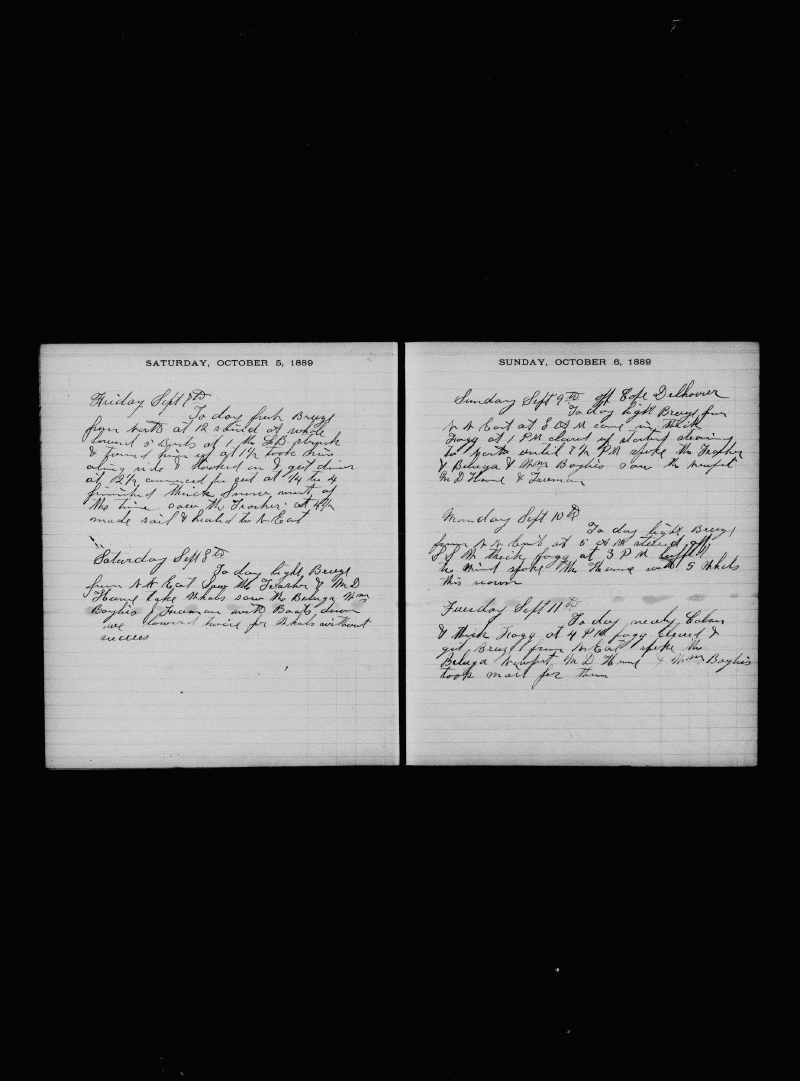 SATURDAY, OCTOBER 5, 1889
Friday Sept 7th
To day fresh Breeze
from North at 12 raised a whale
lowerd 5 Boats at 1 the SB struck
& turned him up at 1 1/2 took him
along side & Hooked on & got diner
at 2 1/2 comenced to cut at 1/4 to 4
finished thick Snow most of
the time saw the Trasher at 4 1/2
made sail & headed to N East
Saturday Sept 8th
To day light Breeze
from N N East saw the Trasher & M D
Hume take Whales saw the Beluga Wm
Baylies & Freeman with Boats down
we lowerd twice for Whales without
success
SUNDAY, OCTOBER 6, 1889
Sunday Sept 9th off Cape Dalhousie
To day light Breeze from
N N East at 8 A M came in thick
Fogg at 1 P M cleard up started steaming
to North until 7 1/2 P M spoke the Trasher
& Beluga & Wm Baylies saw the Newport
M D Hume & Freeman
Monday Sept 10th
To day light Breeze
from N N East at 5 A M steerd off
S S W thick fogg at 3 P M
to Wind spoke the Hume with 5 Whales
this season
Tuesday Sept 11th
To day nearly Calm
& thick Fogg at 4 P M fogg cleard &
got Breeze from N East spoke the
Beluga Newport M D Hume & Wm Baylies
took mail for them